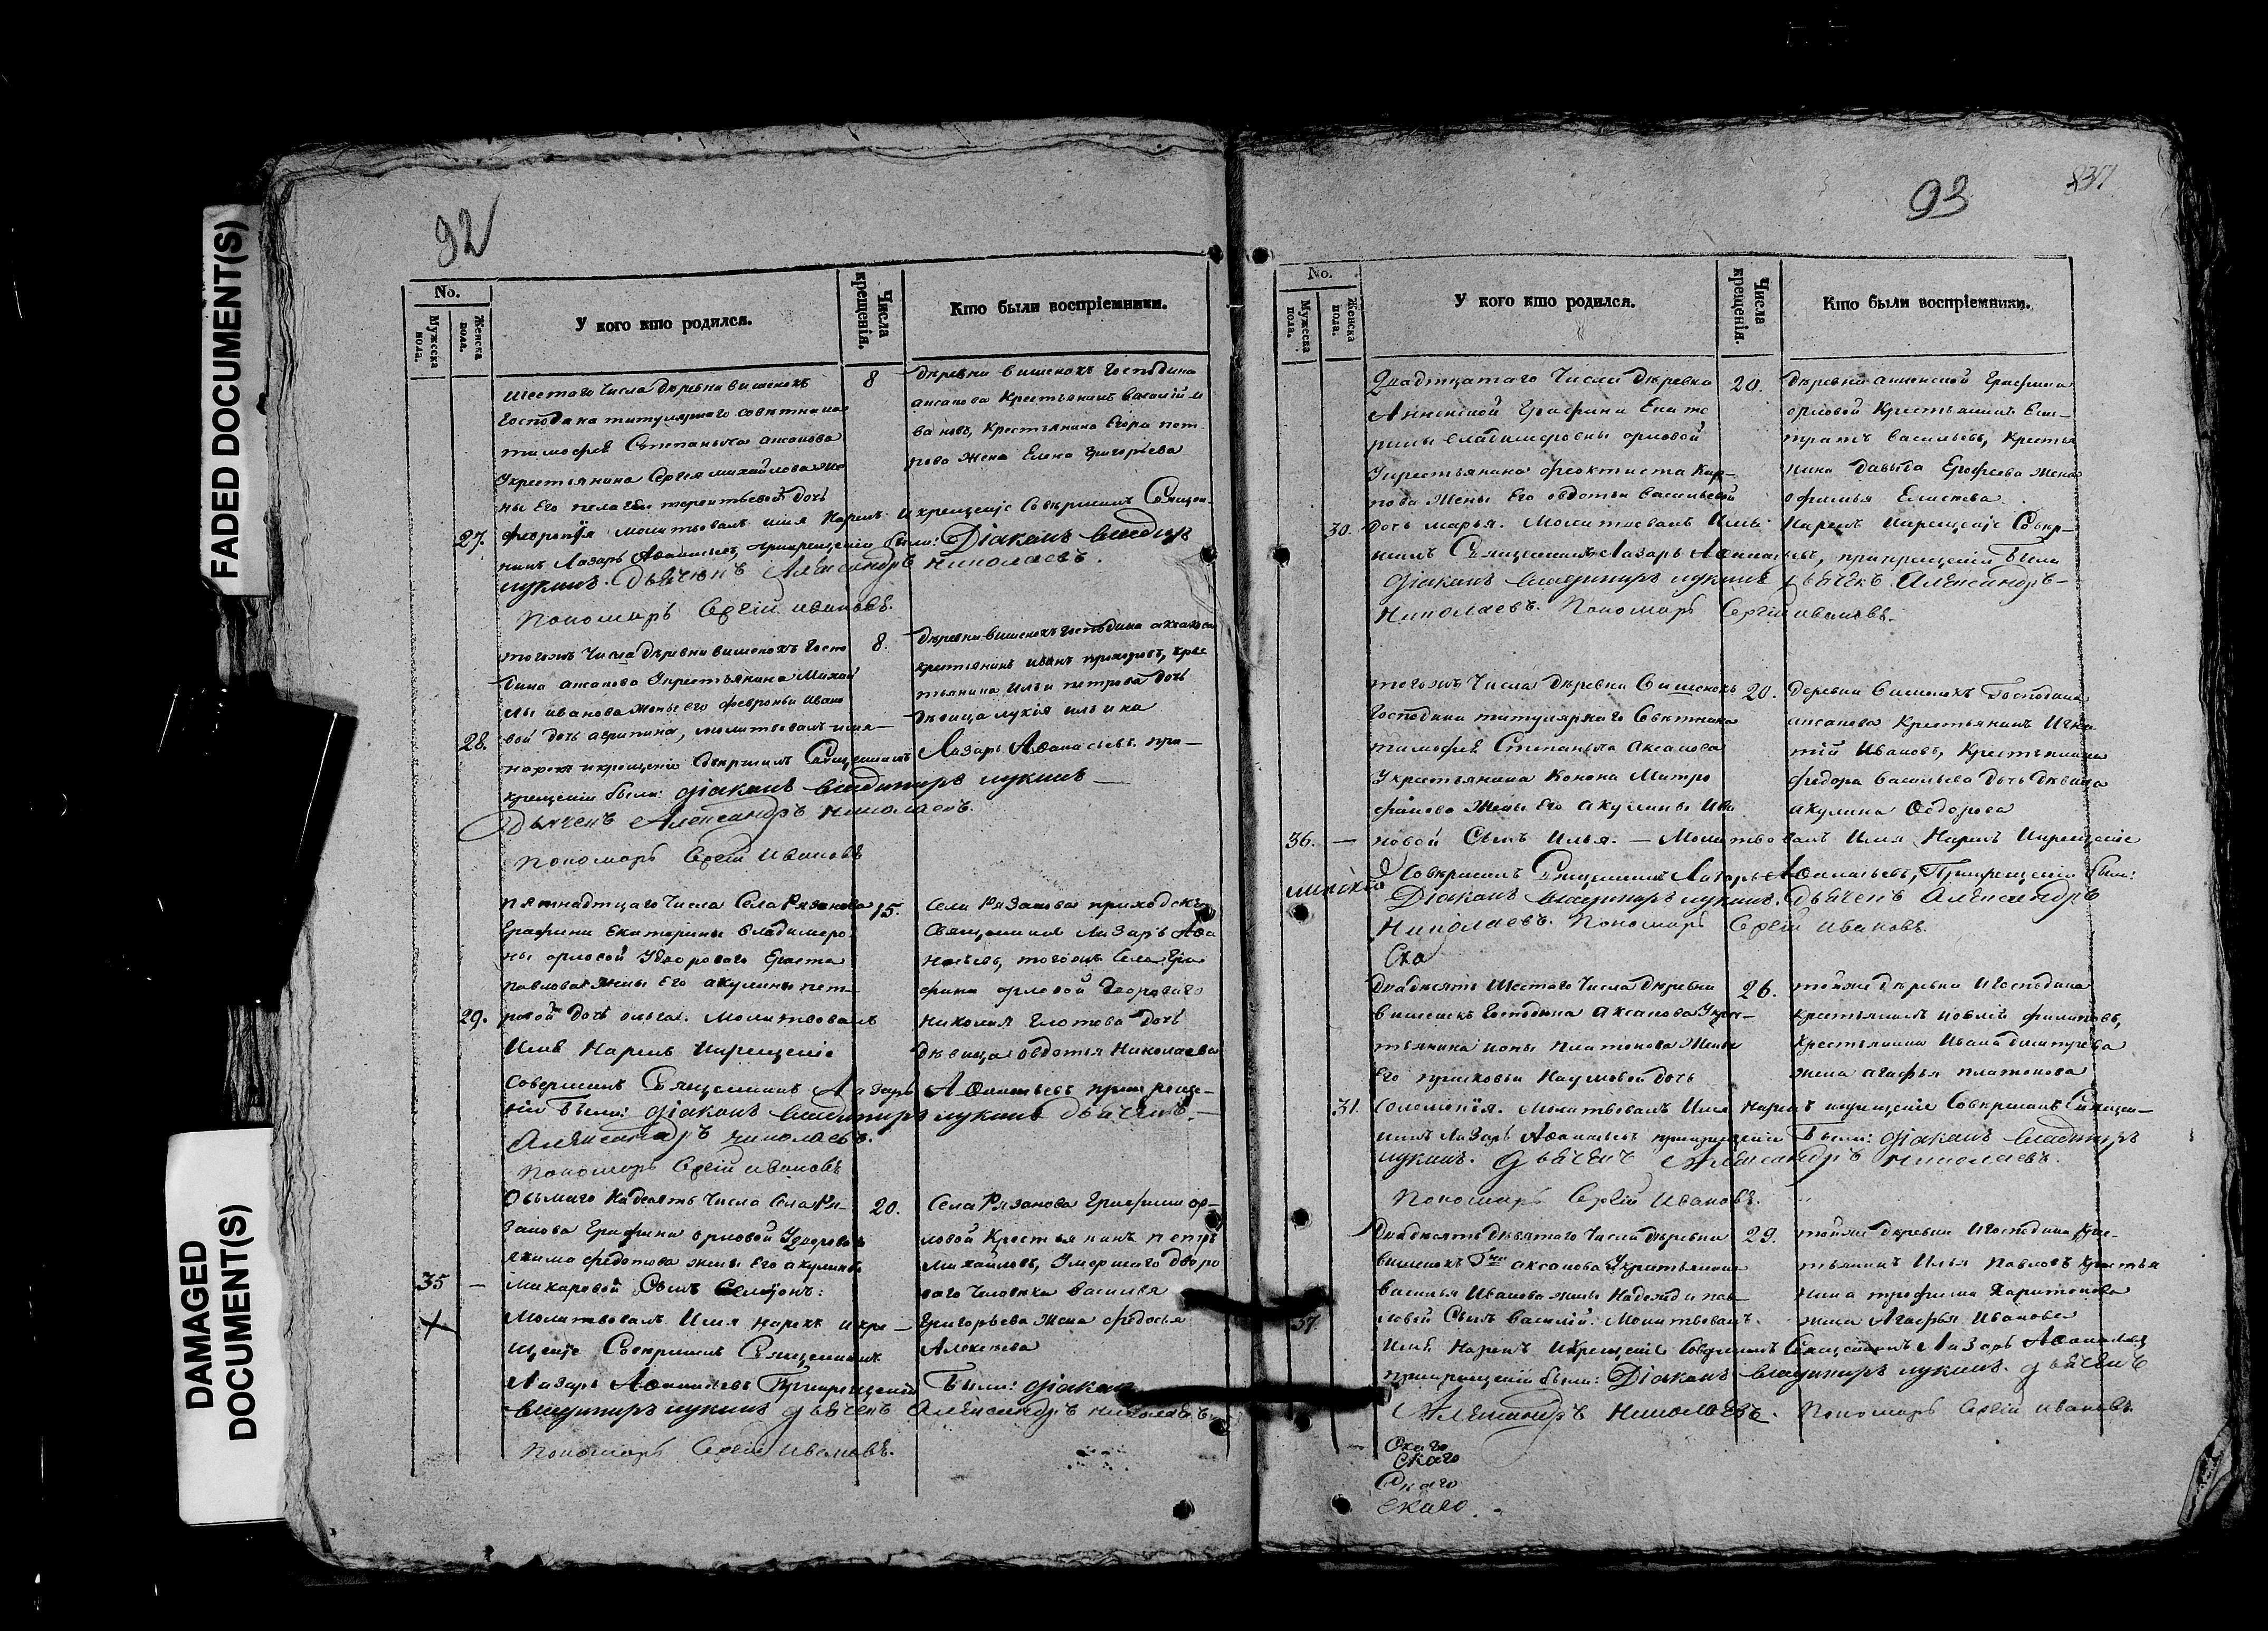 FADED DOCUMENT(S)
DAMAGED
DOCUMENT(S)
92
No.
Мужеска пола.
Женска пола.
У кого кто родился.
Числа крещенія.
Кто были воспріемники.
шестаго числа деревни вишенокъ
Господина титулярнаго советника
тимофея Степаныча аксакова
Укрестьянина Сергея михайлова же
ны его пелагеи терентьевой дочь
27. феврония молитвовалъ имя нарекъ и крещеніе Совершилъ Священ-
никъ Лазарь Афанасьевъ, прикрещеніи были: Діаконъ владимиръ
лукинъ. дьячекъ Александръ николаевъ.
Пономарь Сергій ивановъ.
8
деревни вишенокъ Господина
аксакова Крестьянинъ василій и
вановъ, крестьянина Егора пет
рова жена Елена григорьева
тогожъ числа деревни вишенокъ Госпо
дина аксакова Укрестьянина Михай
лы иванова жены его февроньи ивано
28. вой дочь агрипина, молитвовалъ имя
нарекъ икрещеніе Совершилъ Священникъ Лазарь Афанасьевъ при-
крещеніи были: діаконъ владимиръ лукинъ
Дьячекъ Александръ николаевъ.
Пономарь Сергій Ивановъ
8.
деревни вишенокъ господина аксакова
крестьянинъ иванъ прохоровъ, крес
тьянина ильи петрова дочь
девица лукія ильина
пятнадтцаго числа Села Рязанова
Графини Екатерины владимеров
ны орловой Удворового Ераста
павлова жены его акулины пет-
29. ровой дочь ольга. Молитвовалъ
Имя Нарекъ икрещеніе
Совершилъ Священникъ Лазарь Афанасьевъ при креще-
ніи были: діаконъ владимиръ лукинъ дьячекъ
Александръ николаевъ.
Пономарь Сергій ивановъ
15.
Села Рязанова приходской
Священникъ Лазарь Афа
насьевъ, тогожъ Села гра
фини орловой дворового
николая глотова дочь
девица овдотья николаева
Осьмаго надесять числа Села Ря-
занова Графини орловой Удворового
якима федотова жены его акулины
35 - макаровой Сынъ Семіонъ:
Молитвовалъ Имя нарекъ икре-
щеніе Совершилъ Священникъ
Лазарь Афанасьевъ Прикрещеніи были: діаконъ
владимиръ лукинъ дьячекъ Александръ николаевъ
Пономарь Сергій ивановъ.
20.
Села Рязанова Графини ор-
ловой Крестьянинъ петръ
михайловъ, Умершаго дворо
ваго человека василья
Григорьева жена федосья
Алексеева
93
837
No.
Мужеска пола.
Женска пола.
У кого кто родился.
Числа крещенія.
Кто были воспріемники.
Двадтцатаго числа деревни
Анненской Графини Екате
рины владимеровны орловой
Укрестьянина феоктиста Кар-
пова жены его овдотьи васильевой
30. дочь марья. Молитвовалъ Имя Нарекъ икрещеніе Совер-
шилъ Священникъ Лазарь Афанасьевъ, прикрещеніи были
діаконъ владимиръ лукинъ дьячекъ Александръ
николаевъ. Пономарь Сергій ивановъ.
20.
деревни анненской Графини
орловой Крестьянинъ Евс-
тратъ васильевъ, Крестья
нина давыда Ерофеева жена
офимья Елисеева
тогожъ числа деревни вишенокъ
Господина титулярнаго Советника
тимофея Степаныча аксакова
Укрестьянина Конона Митро
фанова жены его акулины ива
36. - новой Сынъ Илья. - Молитвовалъ Имя Нарекъ икрещеніе
Совершилъ Священникъ Лазарь Афанасьевъ, Прикрещеніи были:
Діаконъ владимиръ лукинъ. дьячекъ Александръ
Николаевъ. Пономарь Сергій ивановъ.
Ска
20.
деревни вишенокъ Господина
аксакова Крестьянинъ Игна
тій Ивановъ, Крестьянина
федора васильева дочь девица
акулина Федорова
двадесять шестаго числа деревни
вишенокъ Господина аксакова Укрес-
тьянина ионы платонова жены
его прасковьи Наумовой дочь
31. Соломонія. молитвовалъ Имя нарекъ икрещеніе Совершилъ Священ-
никъ Лазарь Афанасьевъ прикрещеніи были: діаконъ владимиръ
лукинъ. дьячекъ Александръ николаевъ.
Пономарь Сергій Ивановъ.
26.
тойже деревни игосподина
крестьянинъ филиповъ,
крестьянина Ивана дмитрева
жена агафья платонова
двадесять девятаго числа деревни
вишенокъ Гна аксакова Укрестьянина
василья Иванова жены Надежды пав-
37. ловой Сынъ василій. Молитвовалъ
Имя Нарекъ икрещеніе Совершилъ Священникъ Лазарь Афанасьевъ
прикрещеніи были: Діаконъ владимиръ лукинъ. дьячекъ
Александръ Николаевъ. Пономарь Сергій ивановъ.
29.
тойже деревни игосподина крес-
тьянинъ Илья Павловъ крестья
нина трофима Харитонова
жена Агафья Иванова
Скаго
Скаго
Скаго
Скаго